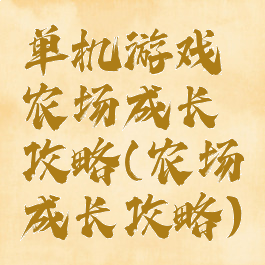 单机游戏
农场成长
攻略(农场
成长攻略)